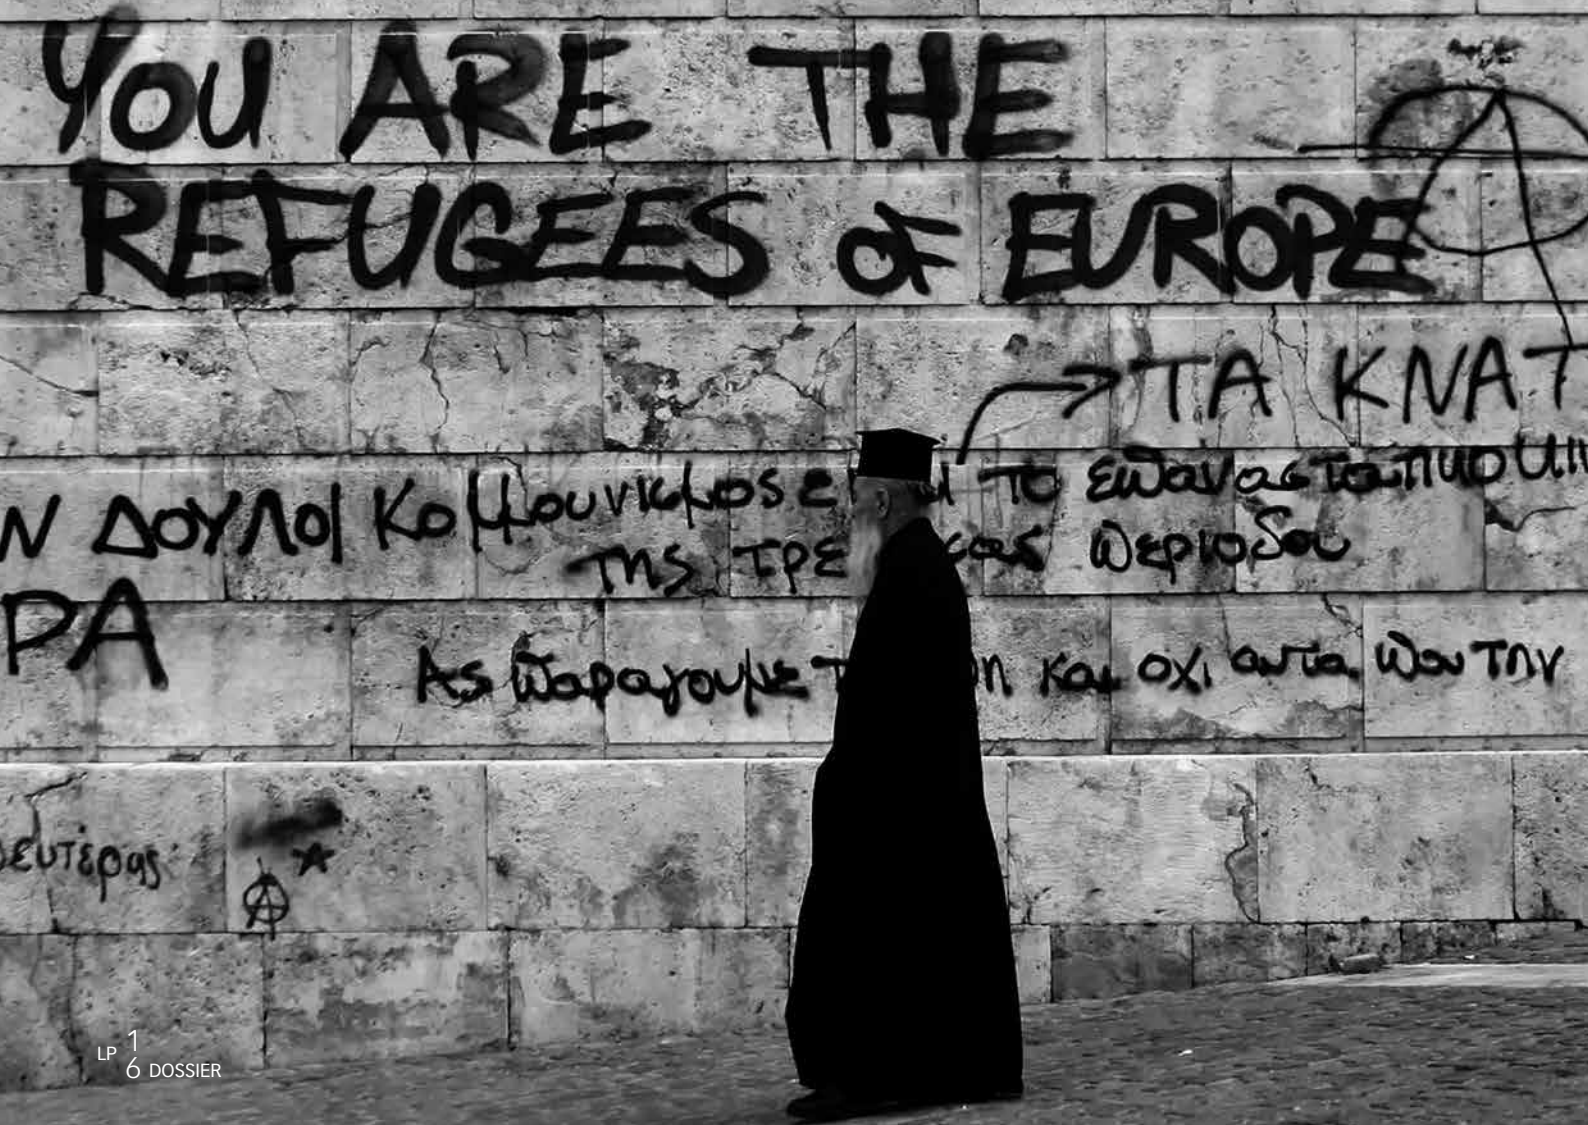 YOU ARE THE
REFUGEES OF EUROPE
ΤΑ ΚΝΑΤ
Ν ΔΟΥΛΟΙ Κομμουνισμός το επαναστατικο
της περιοδου
ΡΑ
Ας παραγουμε και οχι αυτα που την
ευτέρας
A
LP 1
6 DOSSIER